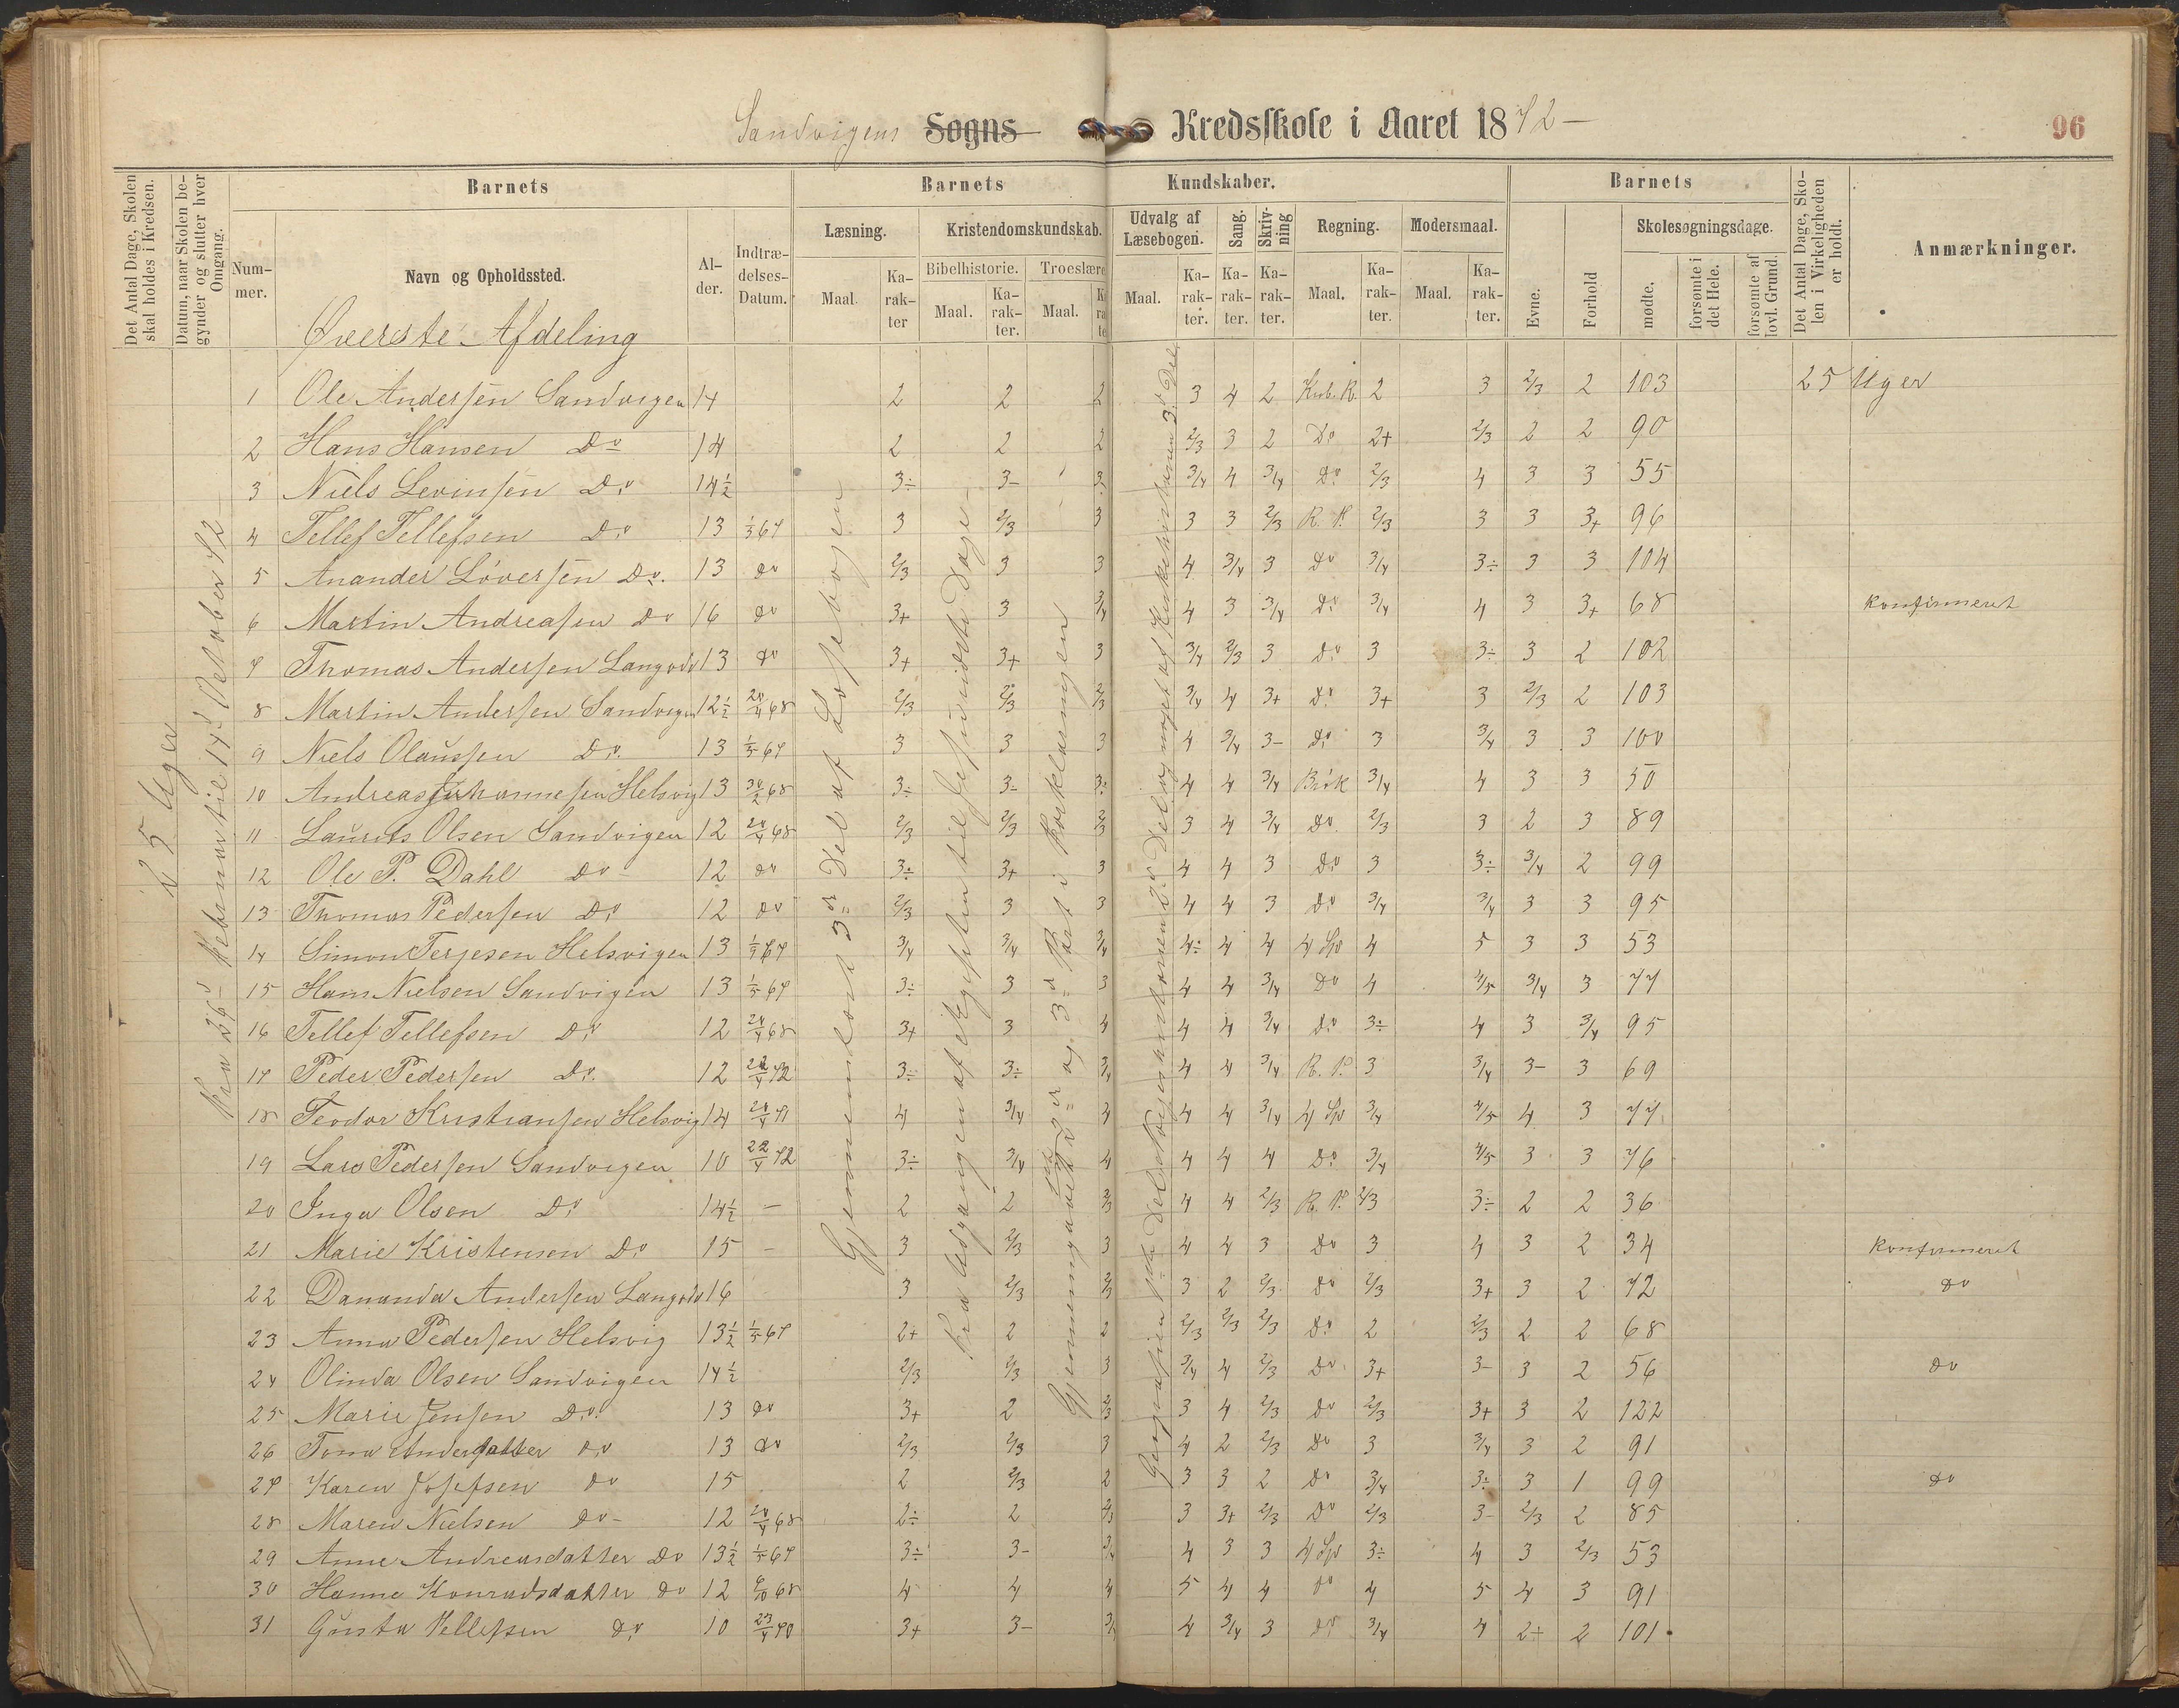 Sandvigens Sogns Kredsskole i Aaret 1872 —
96
Det Antal Dage, Skolen skal holdes i Kredsen.
Datum, naar Skolen begynder og slutter hver Omgang.
Barnets
Nummer.
Navn og Opholdssted.
Alder.
Indtrædelses-Datum.
Barnets Kundskaber.
Læsning.
Maal.
Karakter
Kristendomskundskab.
Bibelhistorie.
Maal.
Karakter.
Troeslære
Maal.
Udvalg af Læsebogen.
Maal.
Karakter.
Sang.
Karakter.
Skrivning
Karakter.
Regning.
Maal.
Karakter.
Modersmaal.
Maal.
Karakter.
Barnets
Evne.
Forhold
Skolesøgningsdage.
mødte.
forsømte i det Hele.
forsømte af lovl. Grund.
Det Antal Dage, Skolen i Virkeligheden er holdt.
Anmærkninger.
Øverste Afdeling
25 Uger
Gjennemlæst 3die Del af Læsebogen
1 Ole Andersen Sandvigen 14 2 2 2 3 4 2 Kub. R. 2 3 2/3 2 103 25 Uger
2 Hans Hansen Do 14 2 2 2 2/3 3 2 Do 2+ 2/3 2 2 90
3 Niels Levinsen Do 14½ 3÷ 3- 3- 3/4 4 3/4 Do 2/3 4 3 3 55
4 Tellef Tellefsen Do 13 1/3 67 3 2/3 3 3 3 2/3 R. P. 2/3 3 3 3+ 96
5 Anander Løversen Do. 13 do 2/3 3 3 4 3/4 3 Do 3/4 3÷ 3 3 104
6 Martin Andreasen Do 16 do 3+ 3 3/4 4 3 3/4 Do 3/4 4 3 3+ 68 konfirmeret
7 Thomas Andersen Langodd 13 do 3+ 3+ 3 3/4 2/3 3 Do 3 3÷ 3 2 102
8 Martin Andersen Sandvigen 12½ 20/4 68 2/3 2/3 2/3 3/4 4 3+ Do 3+ 3 2/3 2 103
9 Niels Olaussen Do. 13 1/5 67 3 3 3 4 3/4 3- do 3 3/4 3 3 100
10 Andreas Johannesen Helsvig 13 30/2 68 3÷ 3÷ 3÷ 4 4 3/4 Brøk 3/4 4 3 3 50
11 Laurits Olsen Sandvigen 12 20/4 68 2/3 2/3 2/3 3 4 3/4 Do 2/3 3 2 3 89
12 Ole P. Dahl Do 12 do 3÷ 3+ 3 4 4 3 Do 3 3÷ 3/4 2 99
13 Thomas Pedersen Do 12 do 2/3 3 3 4 4 3 do 3/4 3/4 3 3 95
14 Simon Terjesen Helsvigen 13 1/9 67 3/4 3/4 3/4 4÷ 4 4 4 Sp 4 5 3 3 53
15 Hans Nielsen Sandvigen 13 1/5 67 3÷ 3 3 4 4 3/4 Do 4 4/5 3/4 3 77
16 Tellef Tellefsen Do 12 20/4 68 3+ 3 4 4 4 3/4 Do 3÷ 4 3 3/4 95
17 Peder Pedersen Do. 12 22/4 72 3÷ 3÷ 3/4 4 4 3/4 R. P. 3 3/4 3- 3 69
18 Teodor Kristiansen Helsvig 14 24/4 71 4 3/4 4 4 4 3/4 4 Sp 3/4 4/5 4 3 77
19 Lars Pedersen Sandvigen 10 22/4 72 3÷ 3/4 4 4 4 4 Do 3/4 4/5 3 3 76
20 Inga Olsen Do 14½ — 2 2 2/3 4 4 2/3 R. P. 2/3 3÷ 2 2 36
21 Marie Kristensen Do 15 — 3 2/3 3 4 4 3 Do 3 4 3 2 34 Konfirmeret
22 Dananda Andersen Langodd 16 3 2/3 2/3 3 2 2/3 do 2/3 3+ 3 2 72 do
23 Anna Pedersen Helsvig 13½ 1/5 67 2+ 2 2 2/3 2/3 2/3 Do 2 2/3 2 2 68
24 Olinda Olsen Sandvigen 14½ 2/3 2/3 3 3/4 4 2/3 Do 3+ 3- 3 2 56 do
25 Marie Jensen Do. 13 do 3+ 2 2/3 3 4 2/3 do 2/3 3+ 3 2 122
26 Tona Andersdatter do 13 do 2/3 2/3 3 4 2 2/3 do 3 3/4 3 2 91
27 Karen Josefsen do 15 2 2/3 2 3 3 2 Do 3/4 3÷ 3 1 99 do
28 Maren Nielsen do- 12 20/4 68 2÷ 2 2/3 3 3+ 2/3 Do 2/3 3- 2/3 2 85
29 Anne Andreasdatter Do 13½ 1/5 67 3÷ 3- 3/4 4 3 3 4 Sp 3÷ 4 3 2/3 53
30 Hanne Konradsdatter do 12 6/10 68 4 4 4 5 4 4 do 4 5 4 3 91
31 Gusta Tellefsen do 10 23/4 70 3+ 3- 3/4 4 3/4 3 do 3/4 4 2+ 2 101